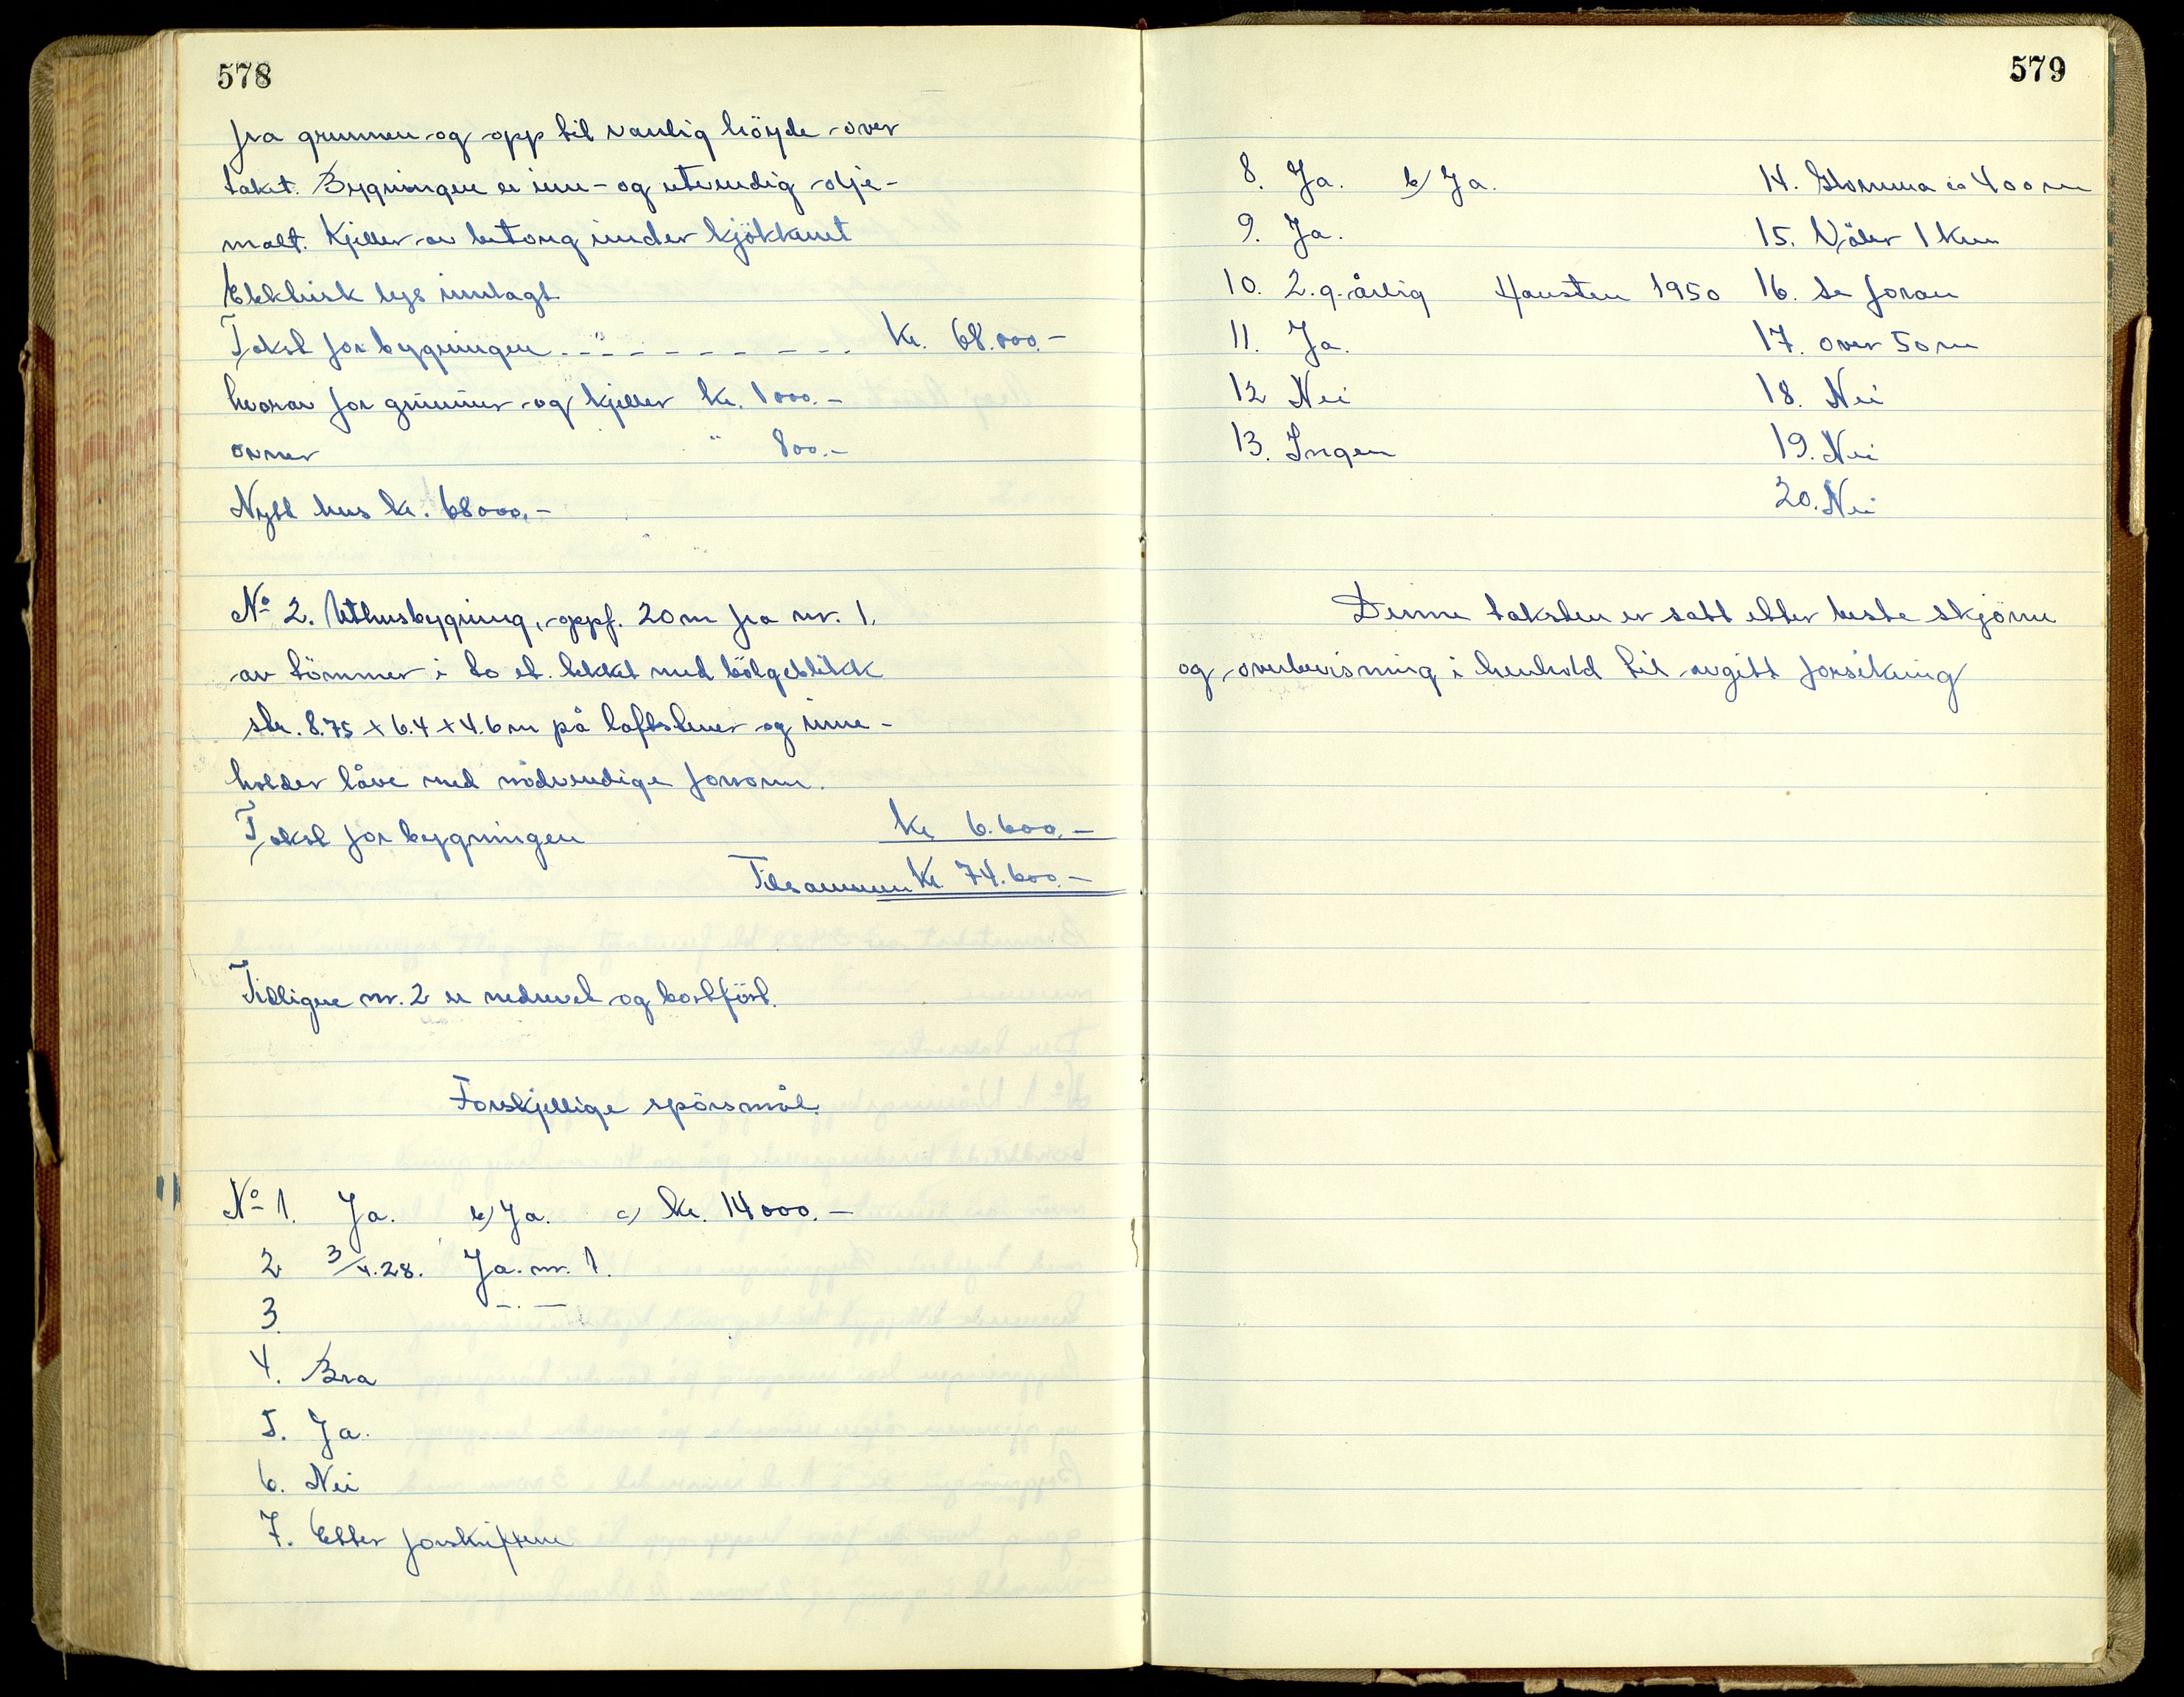 578
fra grunnen og opp til vanlig höyde over
taket. Bygningen er inn- og utvendig olje-
malt. Kjeller av betong under kjökkenet
Elektrisk lys innlagt
Takst for bygningen - - - - - - - - - kr. 68.000.-
hvorav for grunmur og kjeller kr. 1000.-
ovner " 800.-
Nytt hus kr. 68000.-
No 2. Uthusbygning, oppf. 20 m fra nr. 1.
av tömmer i to et. tekket med bölgeblikk
str. 8.75 x 6.4 x 4.6 m på loftsbuer og inne-
holder låve med nödvendige forrom.
Takst for bygningen kr 6.600.-
Tilsammen Kr. 74.600.-
Tidligere nr. 2 er nedrevet og bortfört.
Forskjellige spörsmål.
No 1. Ja. b) Ja. c) kr. 14000.-
2 3/4.28. Ja. nr. 1.
3. -.-
4. Bra
5. Ja.
6. Nei
7. Etter forskriftene
579
8. Ja. b) Ja.
9. Ja.
10. 2.g. årlig Hausten 1950
11. Ja.
12 Nei
13. Ingen
14. Glomma ca 400 m
15. Våler 1 km
16. Se foran
17. over 50 m
18. Nei
19. Nei
20. Nei
Denne taksten er satt etter beste skjönn
og overbevisning i henhold til avgitt forsikring